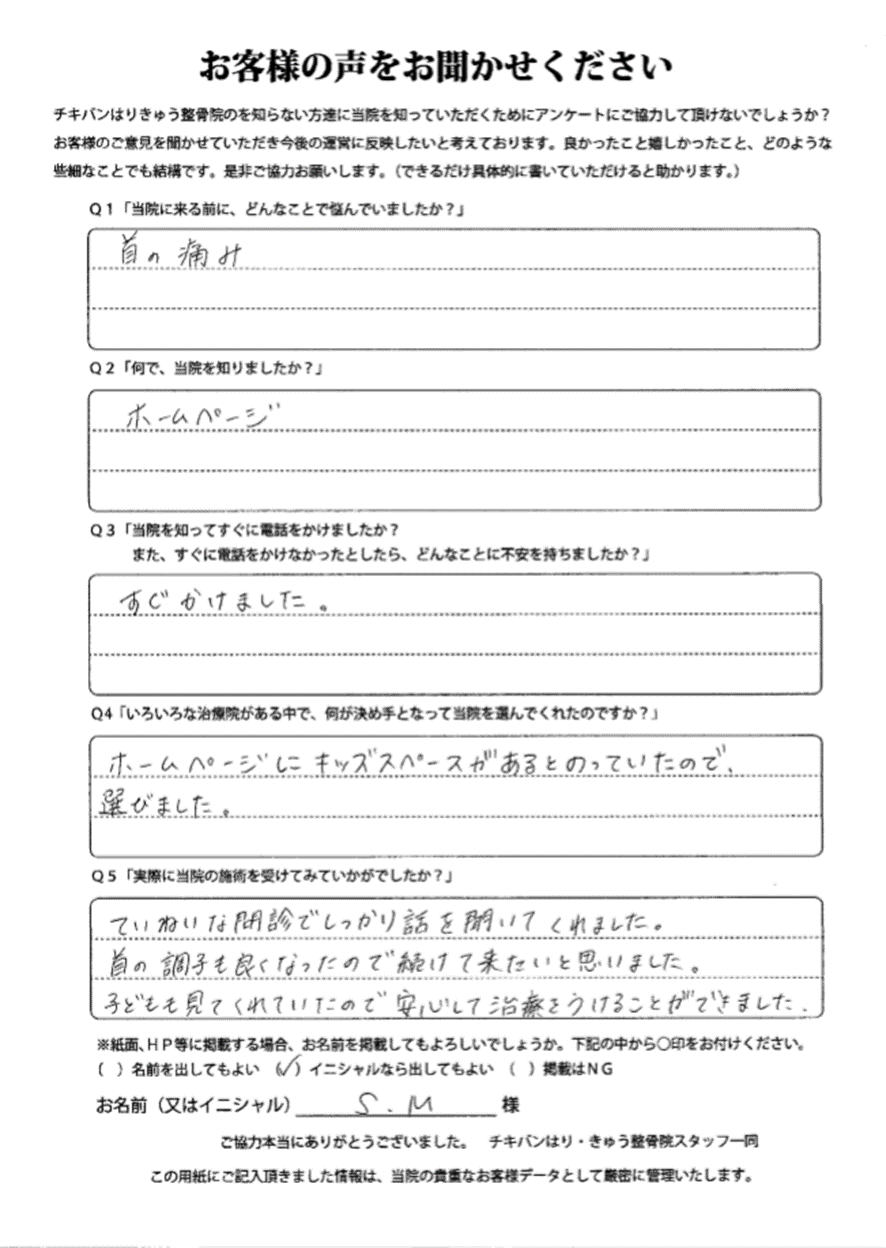 お客様の声をお聞かせください
チキバンはりきゅう整骨院のを知らない方達に当院を知っていただくためにアンケートにご協力して頂けないでしょうか？
お客様のご意見を聞かせていただき今後の運営に反映したいと考えております。良かったこと嬉しかったこと、どのような
些細なことでも結構です。是非ご協力お願いします。（できるだけ具体的に書いていただけると助かります。）
Ｑ１「当院に来る前に、どんなことで悩んでいましたか？」
首の痛み
Ｑ２「何で、当院を知りましたか？」
ホームページ
Ｑ３「当院を知ってすぐに電話をかけましたか？
また、すぐに電話をかけなかったとしたら、どんなことに不安を持ちましたか？」
すぐかけました。
Q4「いろいろな治療院がある中で、何が決め手となって当院を選んでくれたのですか？」
ホームページにキッズスペースがあるとのっていたので、
選びました。
Ｑ５「実際に当院の施術を受けてみていかがでしたか？」
ていねいな問診でしっかり話を聞いてくれました。
首の調子も良くなったので続けて来たいと思いました。
子どもも見てくれていたので安心して治療をうけることができました.
※紙面、ＨＰ等に掲載する場合、お名前を掲載してもよろしいでしょうか。下記の中から〇印をお付けください。
（ ）名前を出してもよい （✓）イニシャルなら出してもよい （ ）掲載はＮＧ
お名前（又はイニシャル） S.M 様
ご協力本当にありがとうございました。 チキバンはり・きゅう整骨院スタッフ一同
この用紙にご記入頂きました情報は、当院の貴重なお客様データとして厳密に管理いたします。